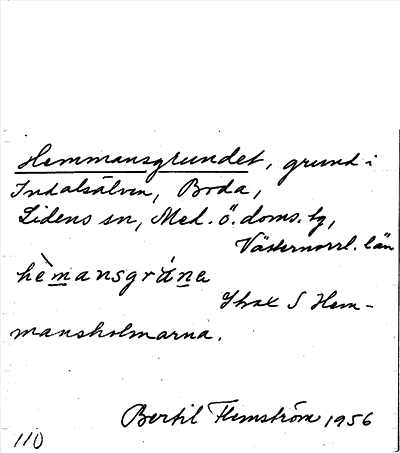 Hemmansgrundet, grund i
Indalsälven, Boda,
Lidens sn, Med. ö. doms. tg,
Västernorrl. län
hèmansgrúne
Strax S Hem-
mansholmarna.
Bertil Flemström 1956
110